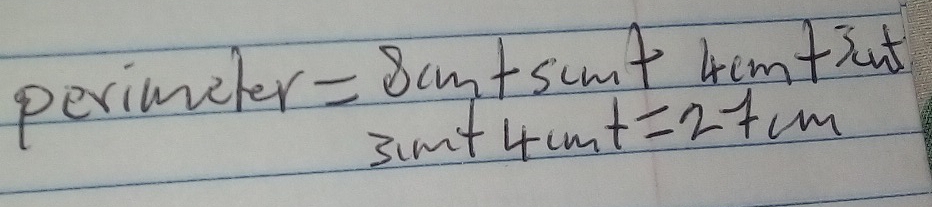 perimeter = 8cm + 5cm + 4cm + 3cm +
3cm + 4cm + = 27cm